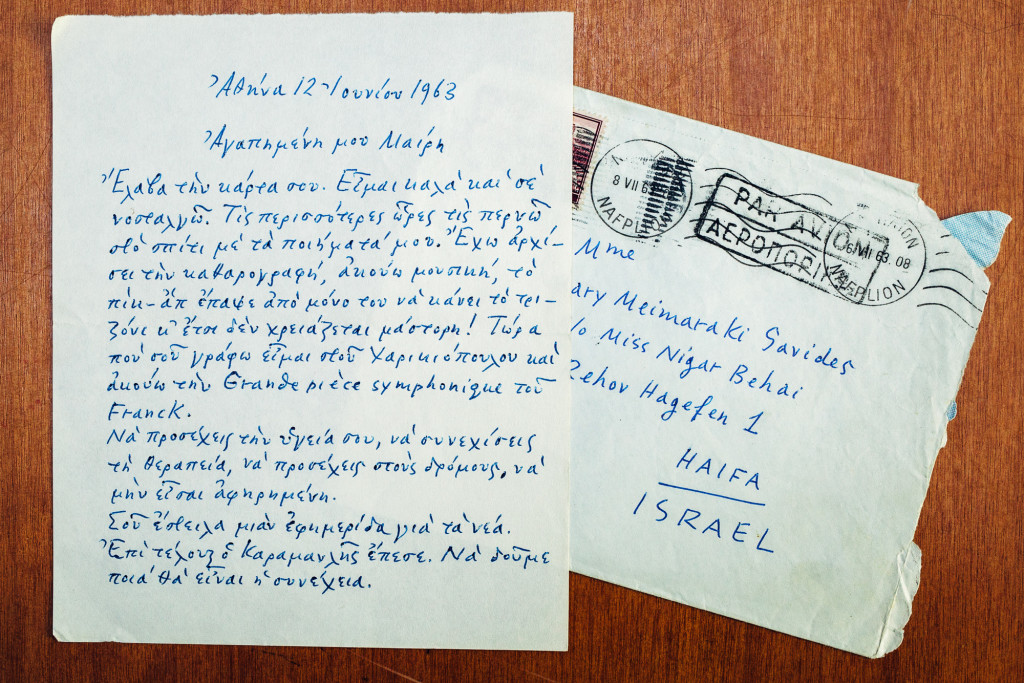 Ἀθήνα 12 Ἰουνίου 1963
Ἀγαπημένη μου Μαίρη
Ἔλαβα τὴν κάρτα σου. Εἶμαι καλὰ καὶ σὲ
νοσταλγῶ. Τὶς περισσότερες ὧρες τὶς περνῶ
στὸ σπίτι μὲ τὰ ποιήματά μου. Ἔχω ἀρχί-
σει τὴν καθαρογραφή, ἀκούω μουσική, τὸ
πίκ-ἀπ ἔπαψε ἀπὸ μόνο του νὰ κάνει τὸ τρι-
ζόνι κ' ἔτσι δὲν χρειάζεται μάστορη! Τώρα
ποὺ σοῦ γράφω εἶμαι στοῦ Χαρικιόπουλου καὶ
ἀκούω τὴν Grande pièce symphonique τοῦ
Franck.
Νὰ προσέχεις τὴν ὑγεία σου, νὰ συνεχίσεις
τὴ θεραπεία, νὰ προσέχεις στοὺς δρόμους, νὰ
μὴν εἶσαι ἀφηρημένη.
Σοῦ ἔστειλα μιὰν ἐφημερίδα γιὰ τὰ νέα.
Ἐπὶ τέλους ὁ Καραμανλῆς ἔπεσε. Νὰ δοῦμε
ποιὰ θὰ εἶναι ἡ συνέχεια.
8 VII 63
NAFPL
PAR AV
ΑΕΡΟΠΟΡΙ
VII 63. 08
NAFPLION
Mme
ary Meimaraki Savides
/o Miss Nigar Behai
Rehov Hagefen 1
HAIFA
ISRAEL